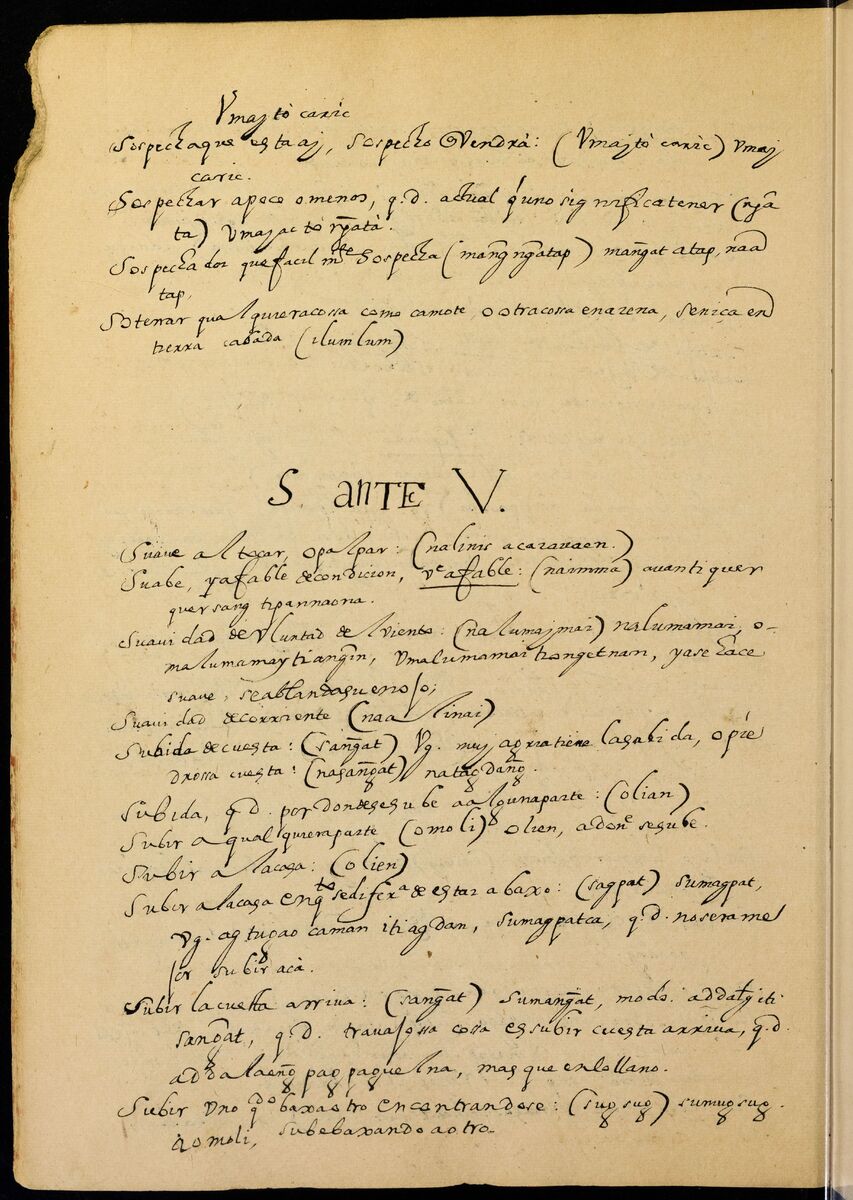 Vmajtò caric
Sospecha que esta aj, sospecho Vendrà: (Vmajtò caric) Vmaj
caric.
Sospechar apoco omenos, q.d. actual q́ uno significa tener
ta) Vmajac to
Sospechador que facil mte sospecha (mang̃ ng̃atap) mang̃at atap, naa
tap,
Soterrar qualquiera cossa como camote, o otra cossa en arena, seniça en
tierra cabada (ilumlum)
S ante V.
Suave al tocar, o palpar: (nalinis a caravaen.)
Suabe, y afable de condicion, vt afable: (naimmã) avanti quer
quersang tipannaona.
Suavidad de Vluntad del viento: (nalumajmai) nalumamai, o-
malumamay ti ang̃in, vmalumamai tiongetnan, ya se haçe
suave, se ablanda su enojo;
Suavidad de corriente (naalinai)
Subida de cuesta: (sang̃at) Vg. muj agria tiene la subida, o pie
drossa cuesta: (nasang̃at) natagdang̃.
Subida, q.d. por donde se sube a alguna parte: (olian)
Subir a qualquiera parte (omoli) olien, adone se sube.
Subir a la casa: (olien)
Subir a la casa en qto se difera de estar abaxo: (sagpat) sumagpat,
Vg. agtugao caman iti agdan, sumagpatca, q.d. no sera me
jor subir acà.
Subir la cuesta arriva: (sang̃at) sumang̃at, mods. iti
sang̃at, q.d. travajossa cossa es subir cuesta arriva, q.d.
pag paguelna, mas que en lo llano.
Subir Vno qdo baxa otro encontrandose: (sugsug) sumugsug.
qomoli, sube baxando a otro.